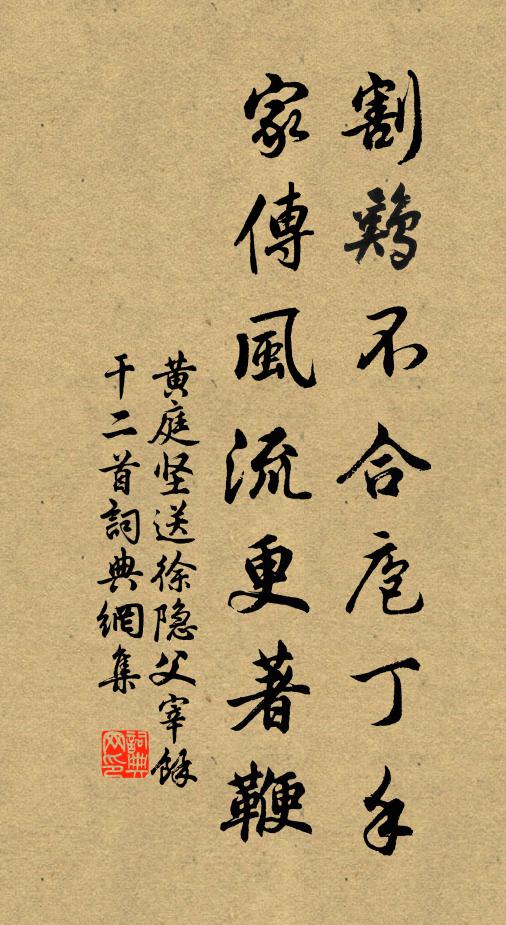 割鷄不合庖丁手
家傳風流更著鞭
黄庭坚送徐隐父宰餘
干二首詞典網集
詞典
网印